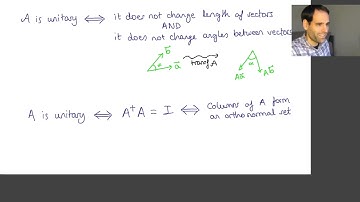 A is unitary ⟺ it does not change length of vectors
AND
it does not change angles between vectors
b⃗
α a⃗
transf. A
α
Aa⃗ Ab⃗
A is unitary ⟺ A†A = I ⟺ Columns of A form
an orthonormal set